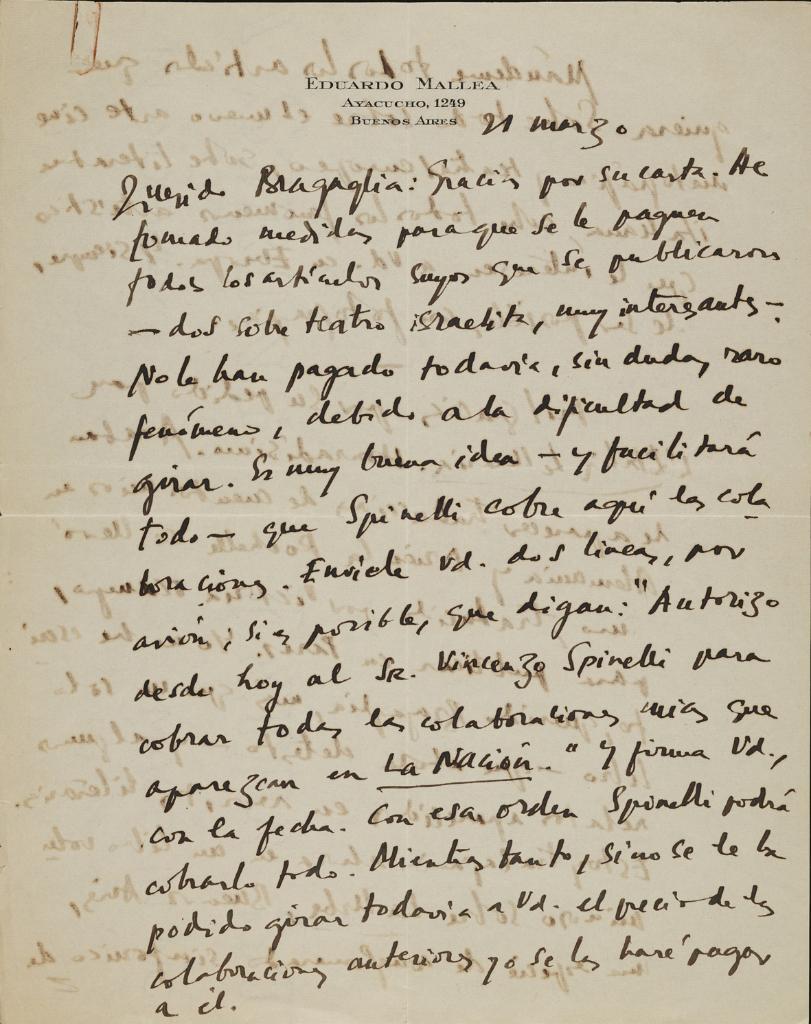 EDUARDO MALLEA
AYACUCHO, 1249
BUENOS AIRES
21 marzo
Querido Bragaglia: Gracias por su carta. He
tomado medidas para que se le paguen
todos los artículos suyos que se publicaron
— dos sobre teatro israelita, muy interesantes —.
No le han pagado todavía, sin duda, raro
fenómeno, debido a la dificultad de
girar. Es muy buena idea — y facilitará
todo — que Spinelli cobre aquí las cola
boraciones. Envíele Vd. dos líneas, por
avión, si es posible, que digan: "Autorizo
desde hoy al Sr. Vincenzo Spinelli para
cobrar todas las colaboraciones mías que
aparezcan en La Nación." Y firma Vd.,
con la fecha. Con esa orden Spinelli podrá
cobrarlo todo. Mientras tanto, si no se le ha
podido girar todavía a Vd. el precio de las
colaboraciones anteriores yo se las haré pagar
a él.